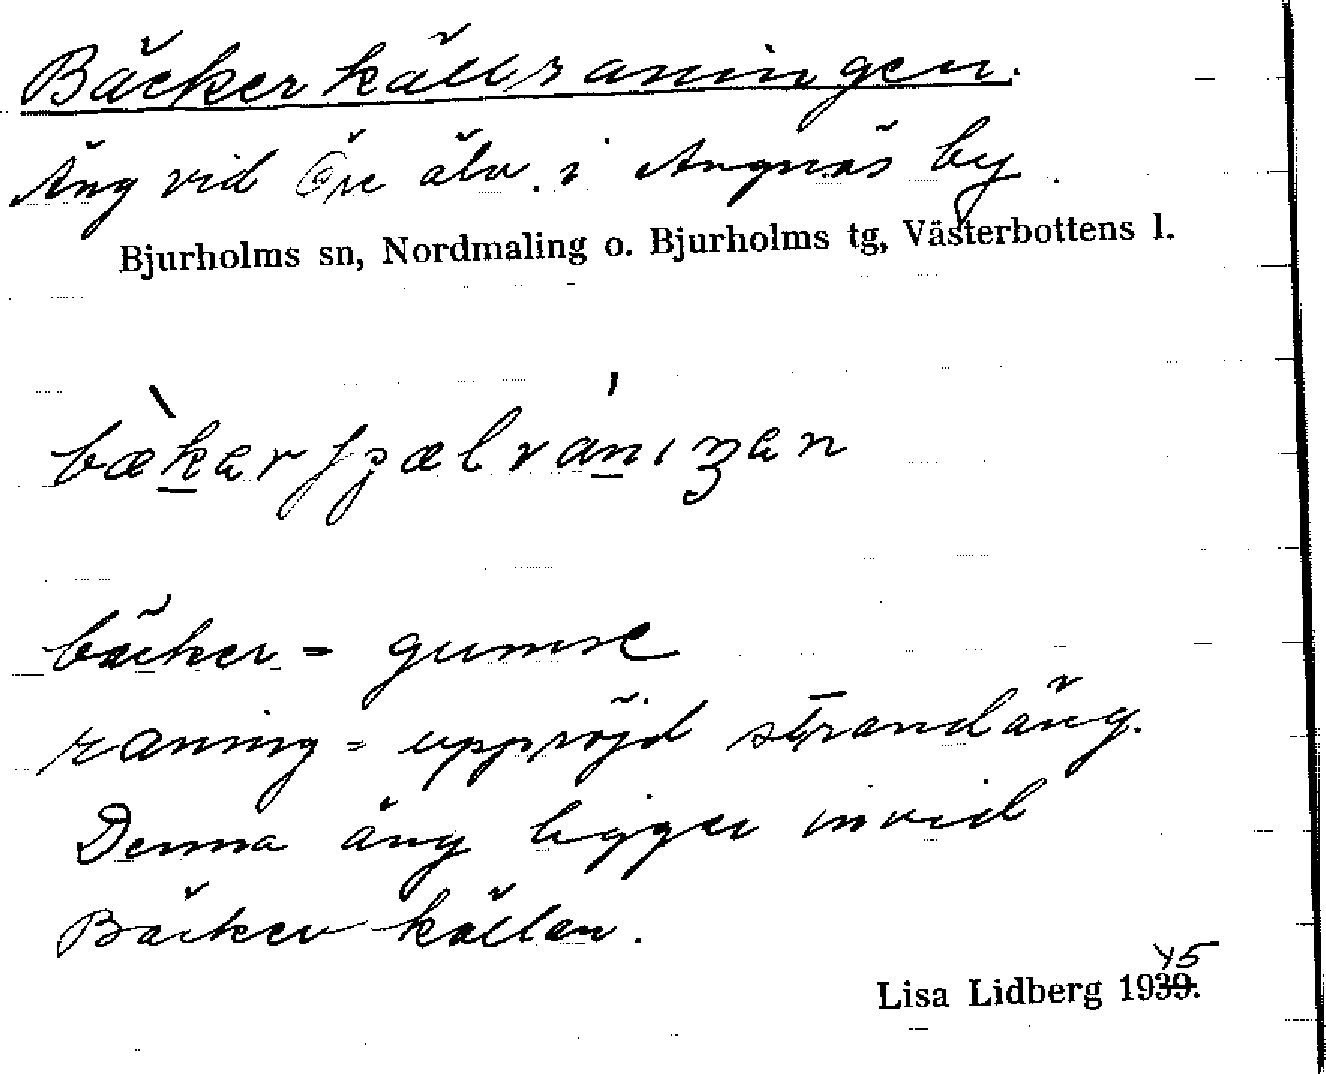 Bäckerkällraningen.
Äng vid Öre älv. i Angnäs by.
Bjurholms sn, Nordmaling o. Bjurholms tg, Västerbottens l.
bäcker = gumse
raning = uppröjd strandäng.
Denna äng ligger invid
Bäckerkällan.
45
Lisa Lidberg 1939.